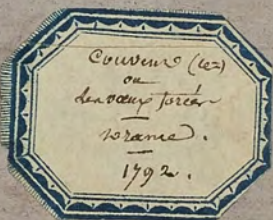 Couvens (les)
ou
les vœux forcés
Drame.
1792.